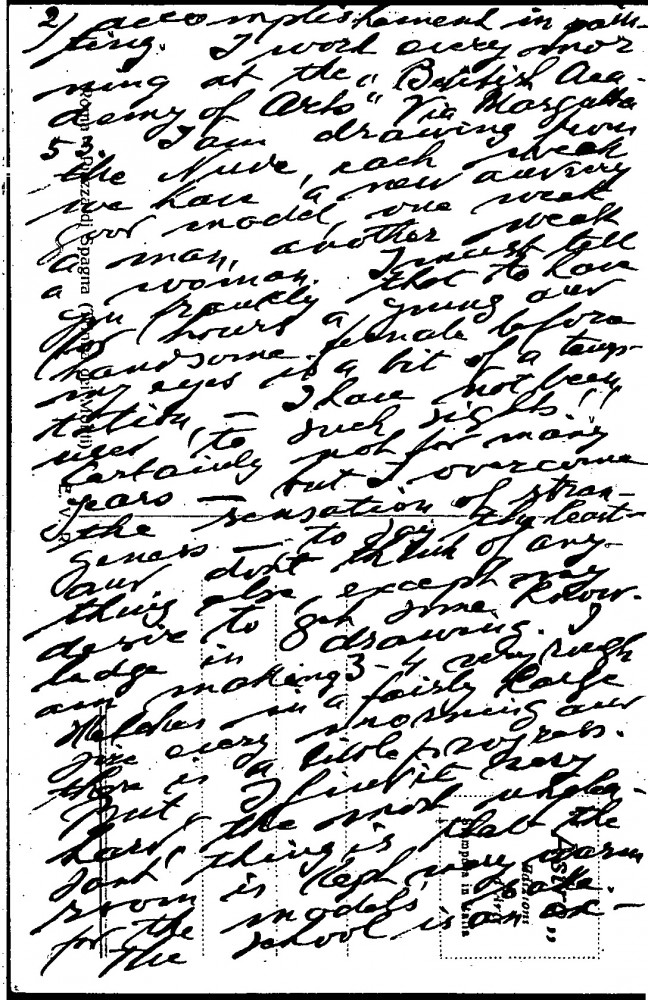 2) accomplishment in pain-
ting. I work every mor
ning at the "British Aca-
demy of Arts" Via Margutta
53. I am drawing from
the Nude, each week
we have a new
or model, one week
a man, another week
a woman. I must tell
you frankly that to have
for hours a young
handsome female before
my eyes is a bit of a temp-
tation, — I have not been
used to such sights!!
Certainly not for many
years — but I overcome
the sensation of stran-
geness — to say the least —
don't think of any-
thing else, except my
desire to get some know-
ledge in drawing. I
am making 3-4 very rough
sketches in a fairly large
size every morning
there is a little progress.
But I find it very
hard, the most unplea-
sant thing is that the
room is kept very warm
for the models' sake.
The school is an ex-
Spagna
Edizioni
Stampata in Italia